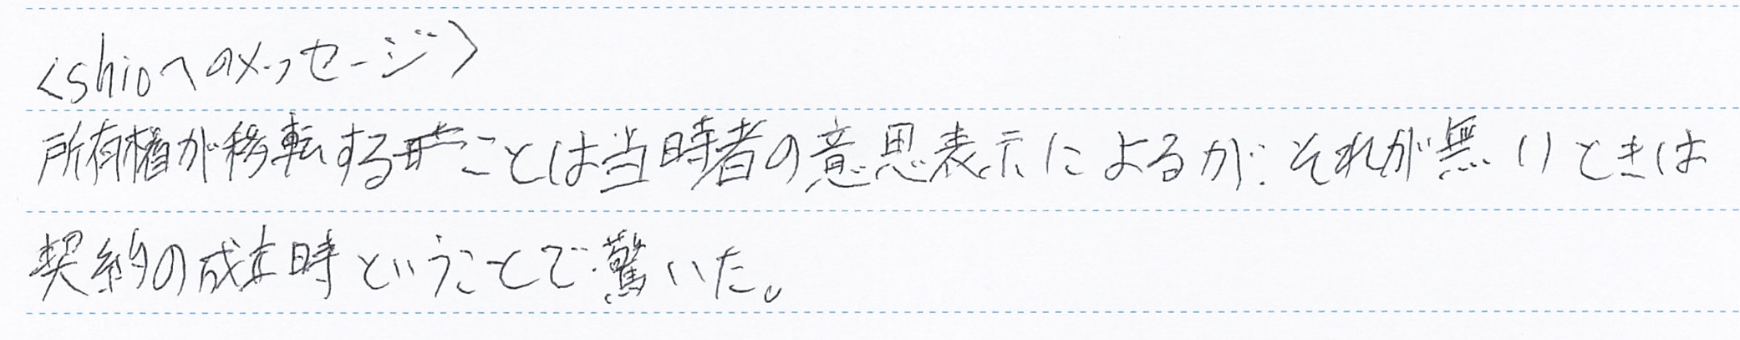 <shioへのメッセージ>
所有権が移転することは当時者の意思表示によるが、それが無いときは
契約の成立時ということで驚いた。